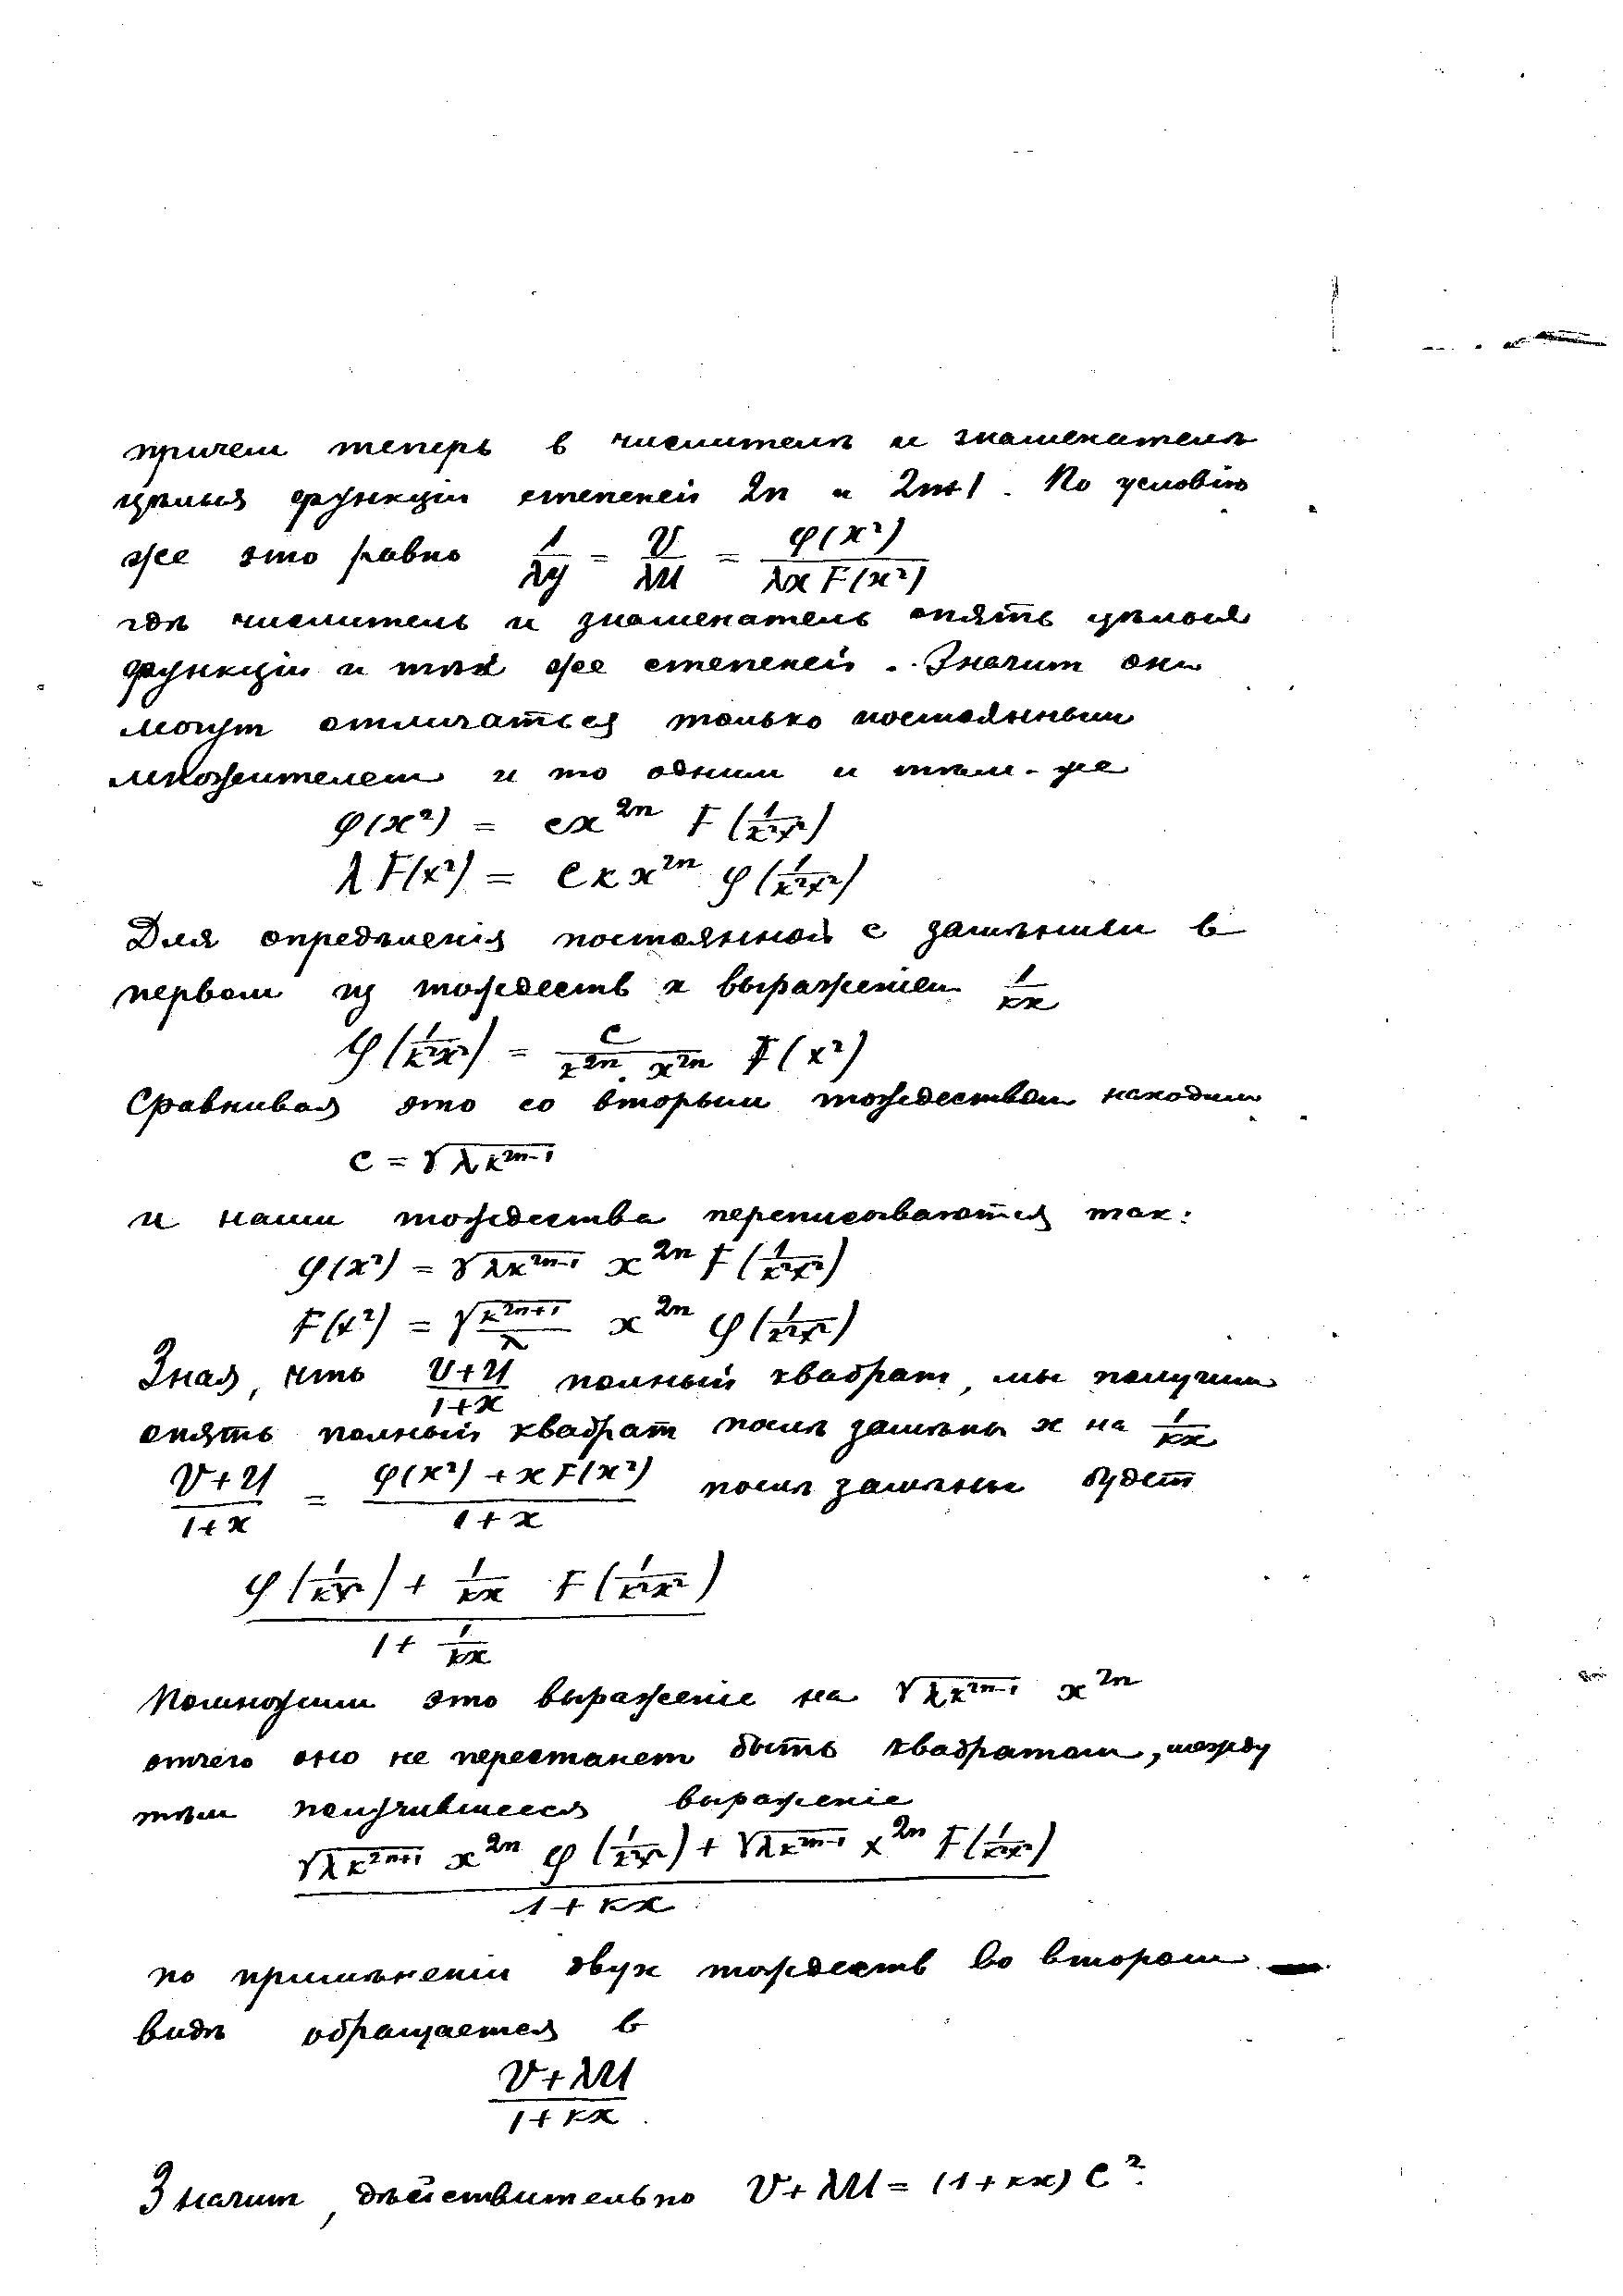 причем теперь в числителѣ и знаменателѣ
цѣлыя функціи степеней 2n и 2n+1. По условію
же это равно 1/(λy) = V/(λU) = φ(x²)/(λx F(x²))
гдѣ числитель и знаменатель опять цѣлыя
функціи и тѣх же степеней. Значит они
могут отличаться только постоянным
множителем и то одним и тѣм-же
φ(x²) = cx²ⁿ F(1/(k²x²))
λ F(x²) = c k x²ⁿ φ(1/(k²x²))
Для опредѣленія постоянной c замѣним в
первом из тождеств x выраженіем 1/(kx)
φ(1/(k²x²)) = c/(k²ⁿ. x²ⁿ) F(x²)
Сравнивая это со вторым тождеством находим
c = √(λk²ⁿ⁻¹)
и наши тождества переписываются так:
φ(x²) = √(λk²ⁿ⁻¹) x²ⁿ F(1/(k²x²))
F(x²) = √(k²ⁿ⁺¹/λ) x²ⁿ φ(1/(k²x²))
Зная, что (V+U)/(1+x) полный квадрат, мы получим
опять полный квадрат послѣ замѣны x на 1/(kx)
(V+U)/(1+x) = (φ(x²) + x F(x²))/(1+x) послѣ замѣны будет
(φ(1/(k²x²)) + 1/(kx) F(1/(k²x²)))/(1 + 1/(kx))
Помножим это выраженіе на √(λk²ⁿ⁻¹) x²ⁿ
отчего оно не перестанет быть квадратом, между
тѣм получившееся выраженіе
(√(λk²ⁿ⁺¹) x²ⁿ φ(1/(k²x²)) + √(λk²ⁿ⁻¹) x²ⁿ F(1/(k²x²)))/(1+kx)
по примѣненіи двух тождеств во втором
видѣ обращается в
(V+λU)/(1+kx).
Значит, дѣйствительно V+λU = (1+kx) C².